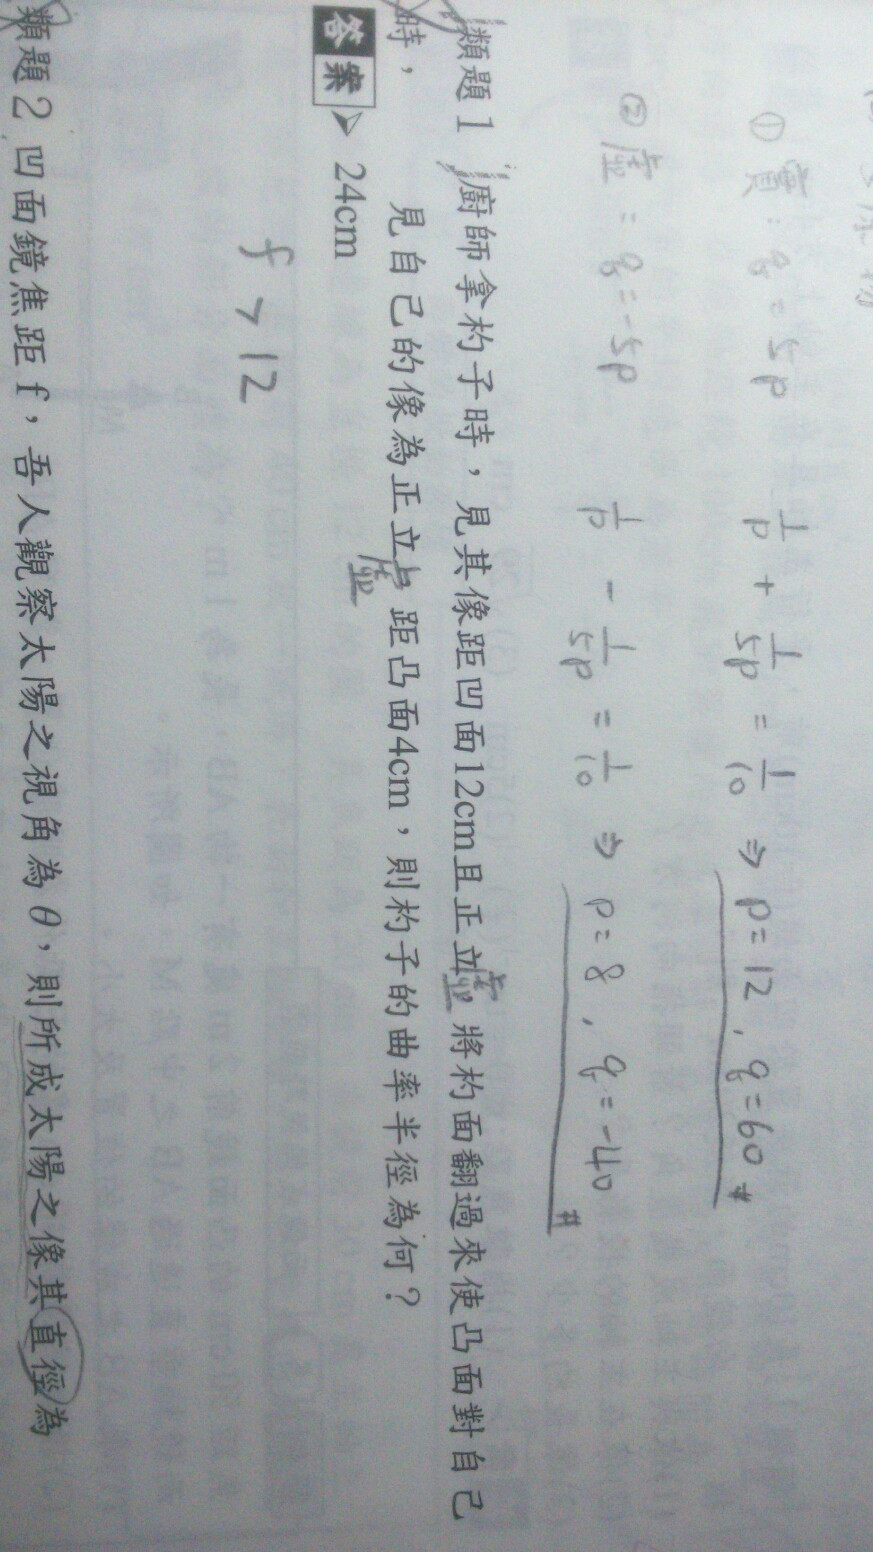 ① 實：q = 5p  1/p + 1/5p = 1/10 ⇒ p = 12 , q = 60 #
② 虛 = q = -5p  1/p - 1/5p = 1/10 ⇒ p = 8 , q = -40 #
類題1 廚師拿杓子時，見其像距凹面12cm且正立虛 將杓面翻過來使凸面對自己
時， 見自己的像為正立虛 距凸面4cm，則杓子的曲率半徑為何？
答案 ➢ 24cm
f > 12
類題2 凹面鏡焦距f，吾人觀察太陽之視角為θ，則所成太陽之像其直徑為